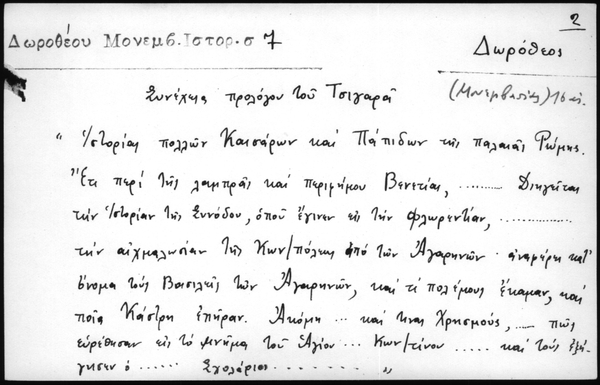 2
Δωροθέου Μονεμβ. Ιστορ. σ 7
Δωρόθεος
(Μονεμβασίας) 16 αἰ.
Συνέχεια προλόγου τοῦ Τσιγαρᾶ
" Ἱστορίας πολλῶν Καισάρων καὶ Πάπιδων τῆς παλαιᾶς Ρώμης.
Ἔτι περὶ τῆς λαμπρᾶς καὶ περιφήμου Βενετίας, .......... Διηγεῖται
τὴν Ἱστορίαν τῆς Συνόδου, ὁποῦ ἔγινεν εἰς τὴν Φλωρεντίαν, ..............
τὴν αἰχμαλωσίαν τῆς Κων/πόλεως ἀπὸ τῶν Ἀγαρηνῶν · ἀναφέρει κατ'
ὄνομα τοὺς Βασιλεῖς τῶν Ἀγαρηνῶν, καὶ τί πολέμους ἔκαμαν, καὶ
ποῖα Κάστρη ἐπῆραν. Ἀκόμη ... καὶ τινας Χρησμούς, ..... πῶς
εὑρέθησαν εἰς τὸ μνῆμα τοῦ Ἁγίου ... Κων/τίνου ..... καὶ τοὺς ἐξή-
γησεν ὁ ...... Σχολάριος ........ "